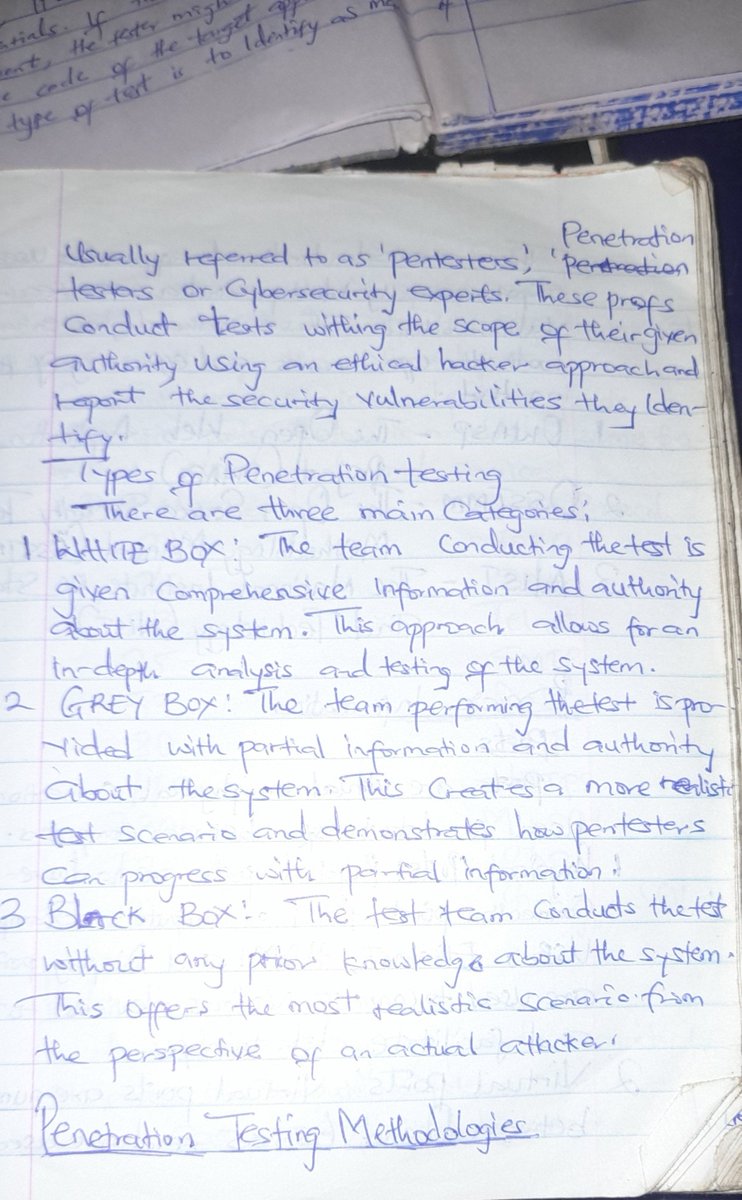 ntials. If
ent, the tester might
e code of the target app
type of test is to Identify as ma
of
Penetration
Usually referred to as 'pentesters', 'penetration
testers or Cybersecurity experts. These profs
Conduct tests withing the scope of their given
authority using an ethical hacker approach and
report the security vulnerabilities they Iden-
tify.
Types of Penetration testing
- There are three main Categories;
1 WHITE BOX: The team Conducting the test is
given Comprehensive Information and authority
about the system. This approach allows for an
in-depth analysis and testing of the system.
2 GREY BOX: The team performing the test is pro-
vided with partial information and authority
about the system. This Creates a more realistic
test scenario and demonstrates how pentesters
Can progress with partial information.
3 Black Box: The test team Conducts the test
without any prior knowledge about the system.
This offers the most realistic Scenario from
the perspective of an actual attacker.
Penetration Testing Methodologies.